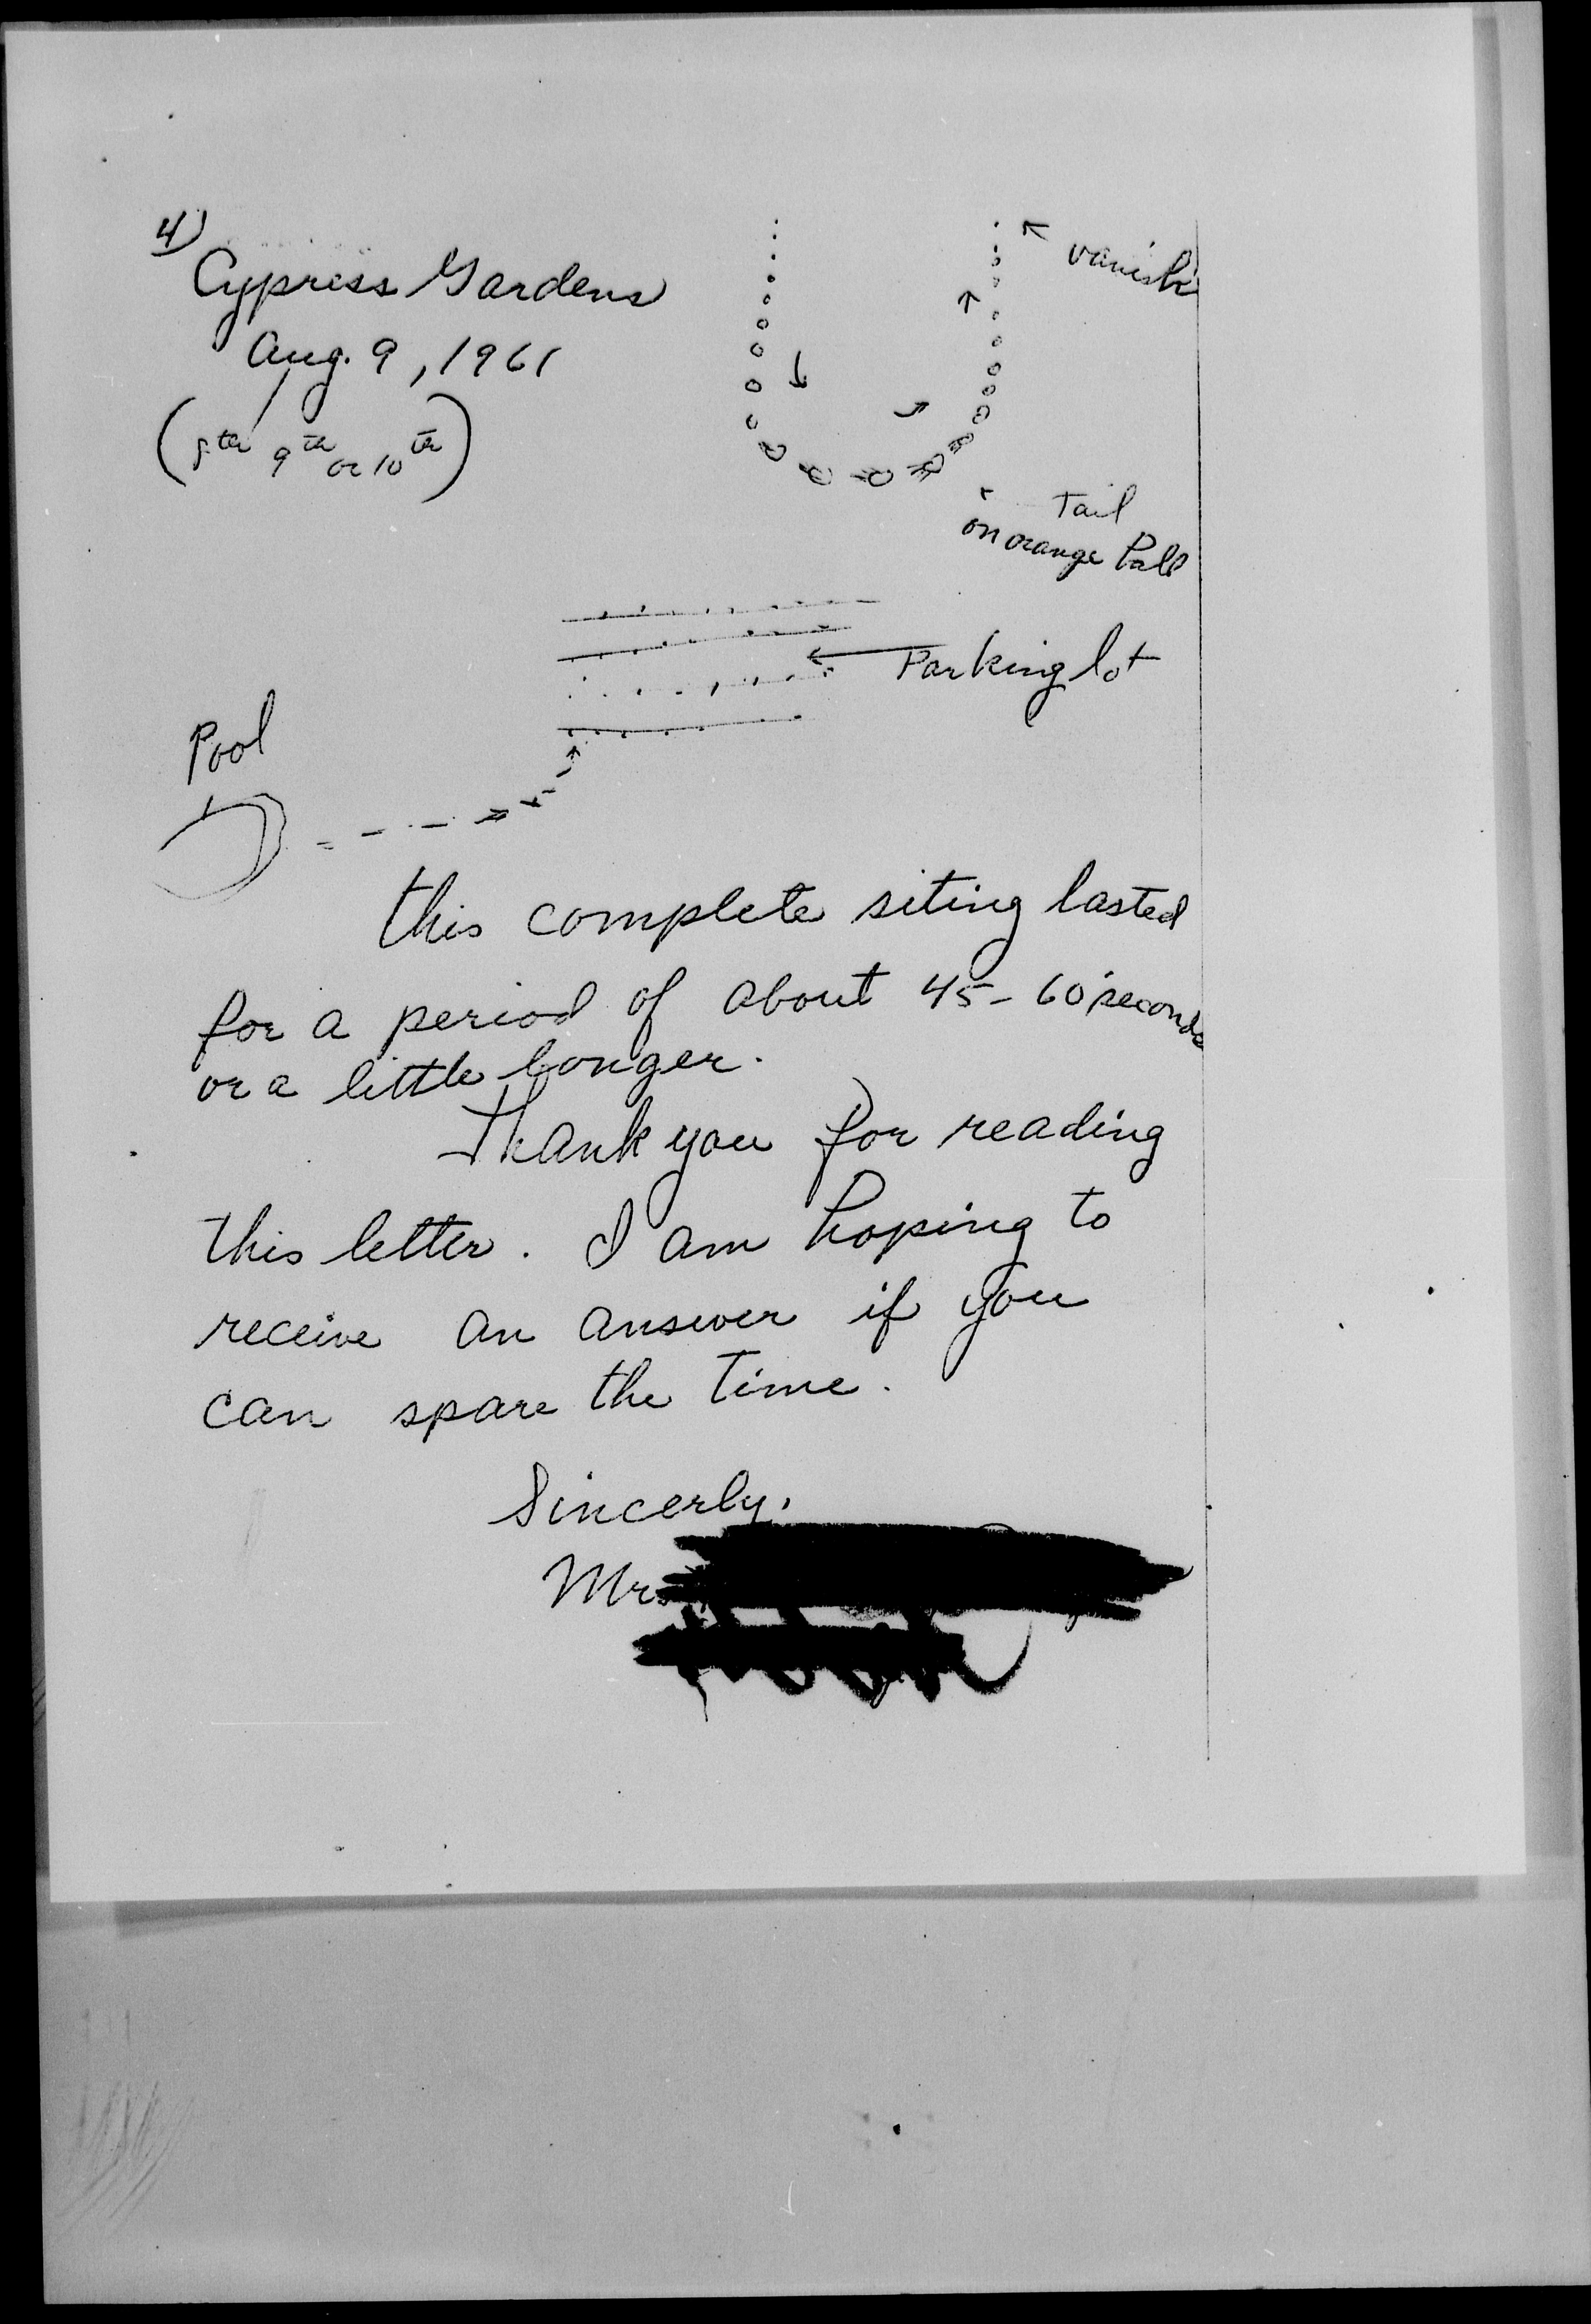 4)
Cypress Gardens
Aug. 9, 1961
(8th 9th or 10th)
vanish
Tail
on orange Ball
Parking lot
Pool
This complete siting lasted
for a period of about 45-60 seconds
or a little longer.
Thank you for reading
this letter. I am hoping to
receive an answer if you
can spare the time.
Sincerly,
Mrs.